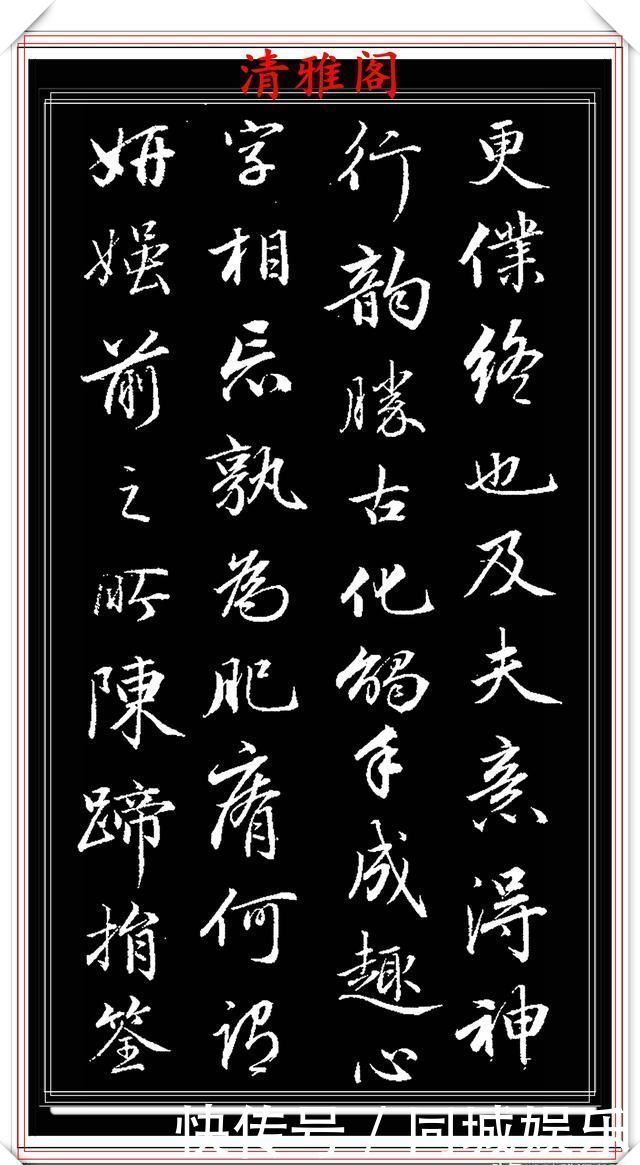 清雅阁
更僕终也及夫意得神
行韵勝古化觸手成趣心
字相忘孰為肥瘠何謂
妍媸前之所陳蹄捐筌
快传号/同城娱乐